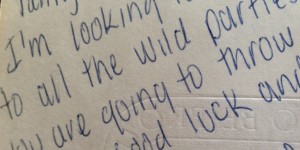 I'm looking
to all the wild parties
you are going to throw
good luck and